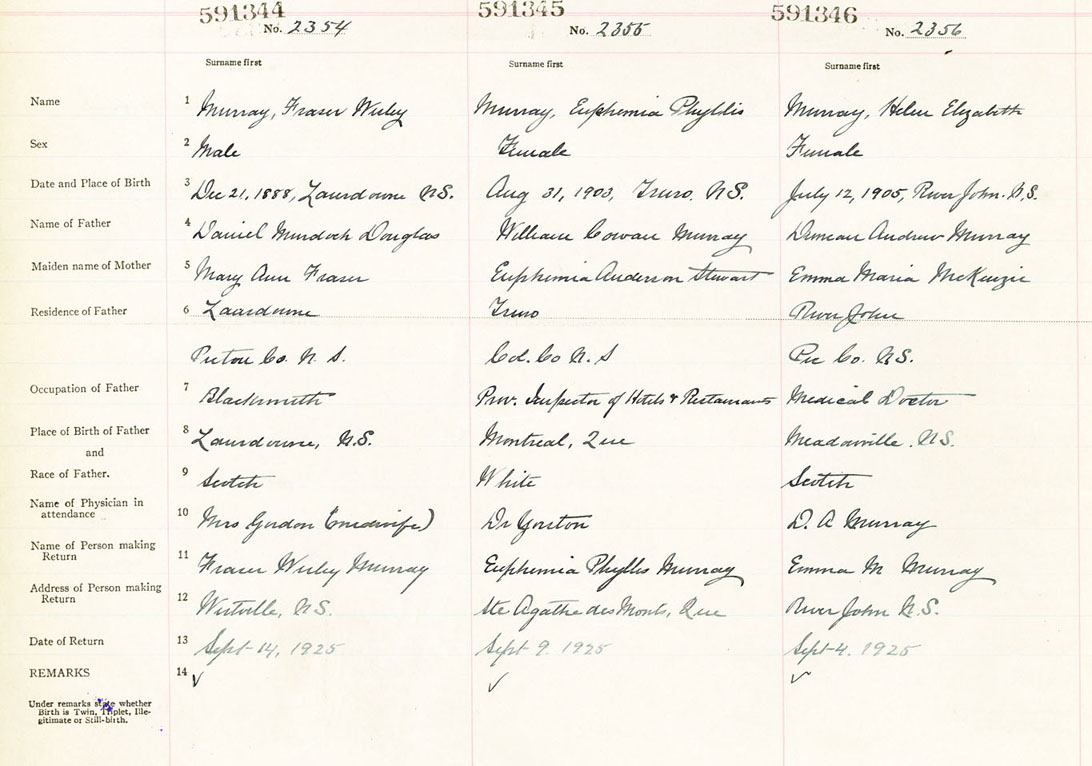 591344 591345 591346
No. 2354 No. 2355 No. 2356
Surname first Surname first Surname first
Name 1 Murray, Fraser Wesley Murray, Euphemia Phyllis Murray, Helen Elizabeth
Sex 2 Male Female Female
Date and Place of Birth 3 Dec 21, 1888, Lansdowne N.S. Aug 31, 1903, Truro, N.S. July 12, 1905, River John. N.S.
Name of Father 4 Daniel Murdoch Douglas William Cowan Murray Duncan Andrew Murray
Maiden name of Mother 5 Mary Ann Fraser Euphimia Anderson Stewart Emma Maria McKenzie
Residence of Father 6 Lansdowne Truro River John
Pictou Co. N. S. Col. Co N. S Pic Co. N.S.
Occupation of Father 7 Blacksmith Prov. Inspector of Hotels & Restaurants Medical Doctor
Place of Birth of Father 8 Lansdowne, N.S. Montreal, Que Meadowville. N.S.
and
Race of Father. 9 Scotch White Scotch
Name of Physician in
attendance 10 Mrs Gordon (midwife) Dr Yorston D. A Murray
Name of Person making
Return 11 Fraser Wesley Murray Euphemia Phyllis Murray Emma M Murray
Address of Person making
Return 12 Westville, N.S. Ste Agathe des Monts, Que River John N.S.
Date of Return 13 Sept 14, 1925 Sept 9. 1925 Sept 4. 1925
REMARKS 14 ✓ ✓ ✓
Under remarks state whether
Birth is Twin, Triplet, Ille-
gitimate or Still-birth.